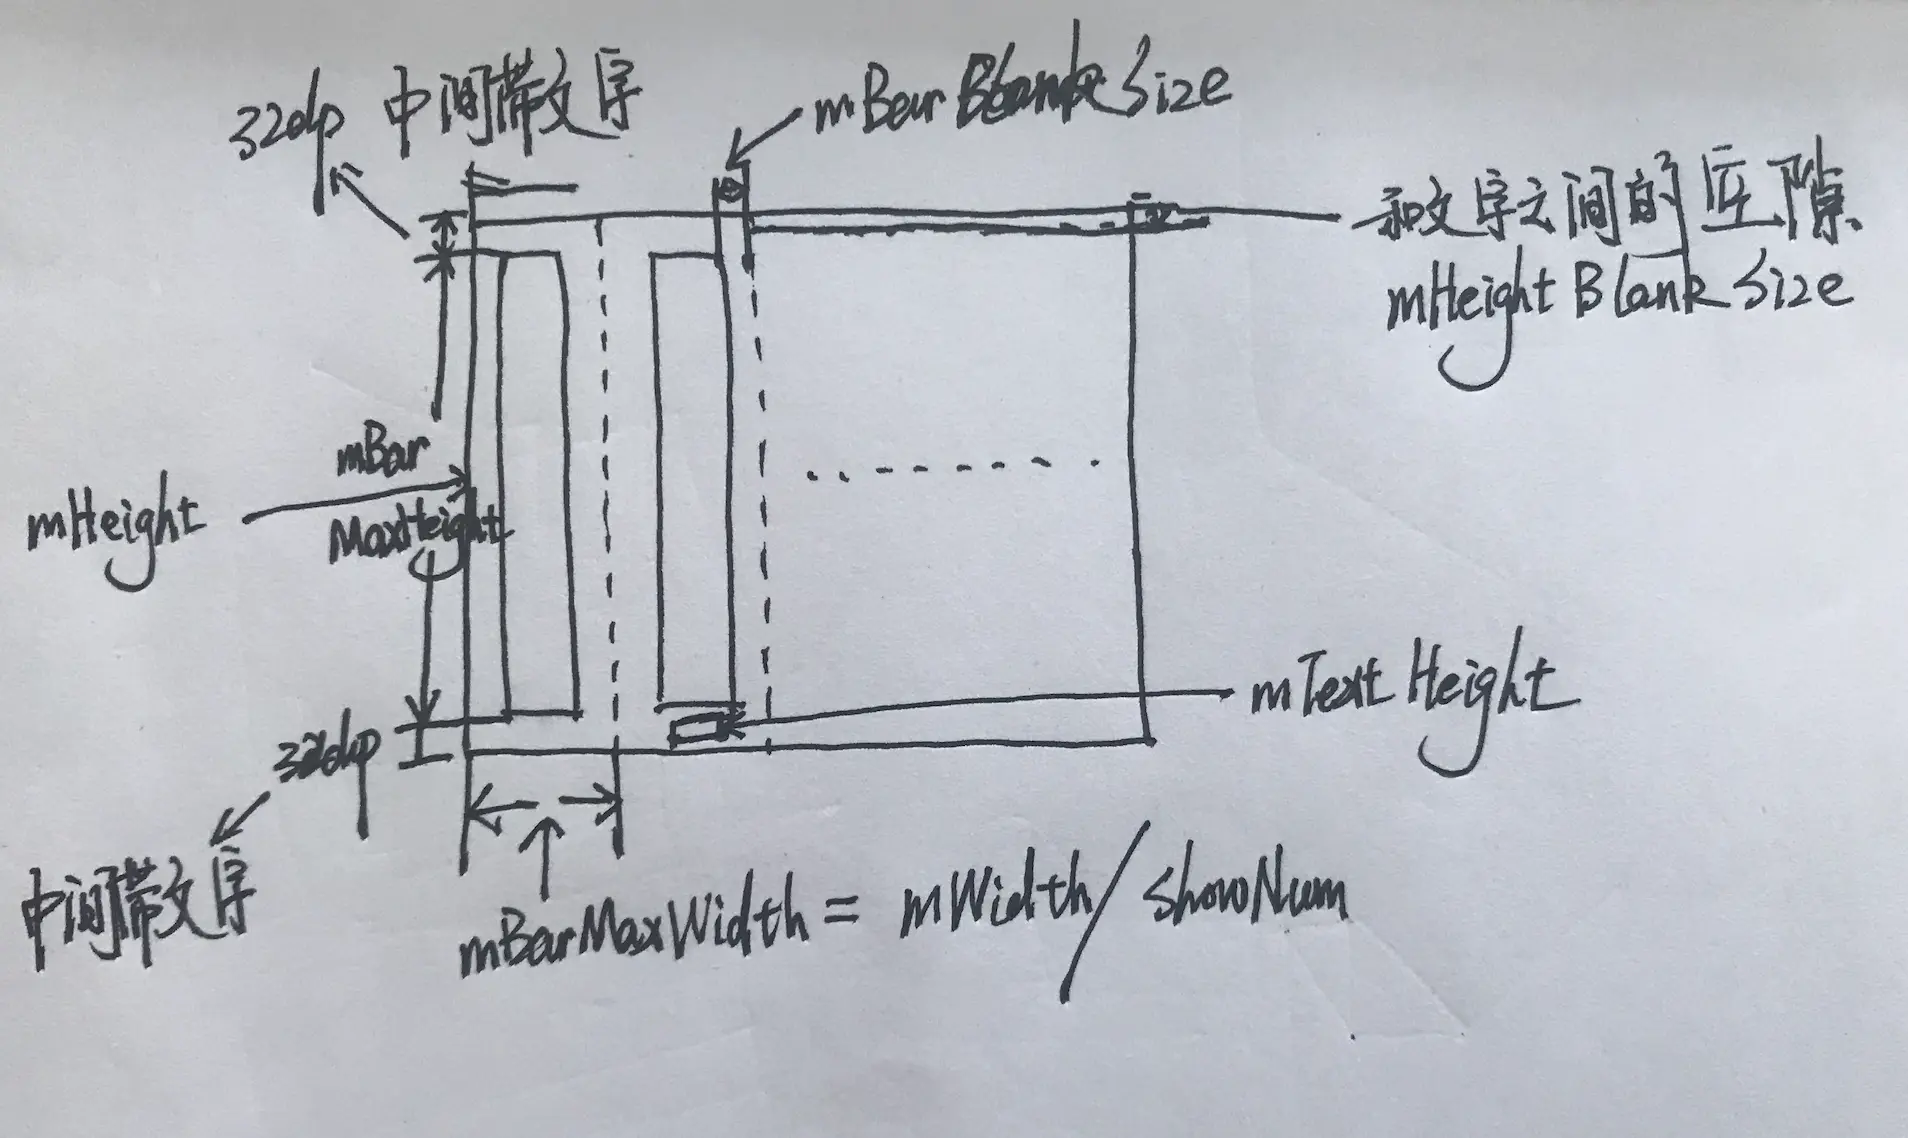 32dp 中间带文字
mBarBlankSize
和文字之间的空隙
mHeightBlankSize
mBar
MaxHeight
mHeight
mTextHeight
32dp
中间带文字
mBarMaxWidth = mWidth/showNum